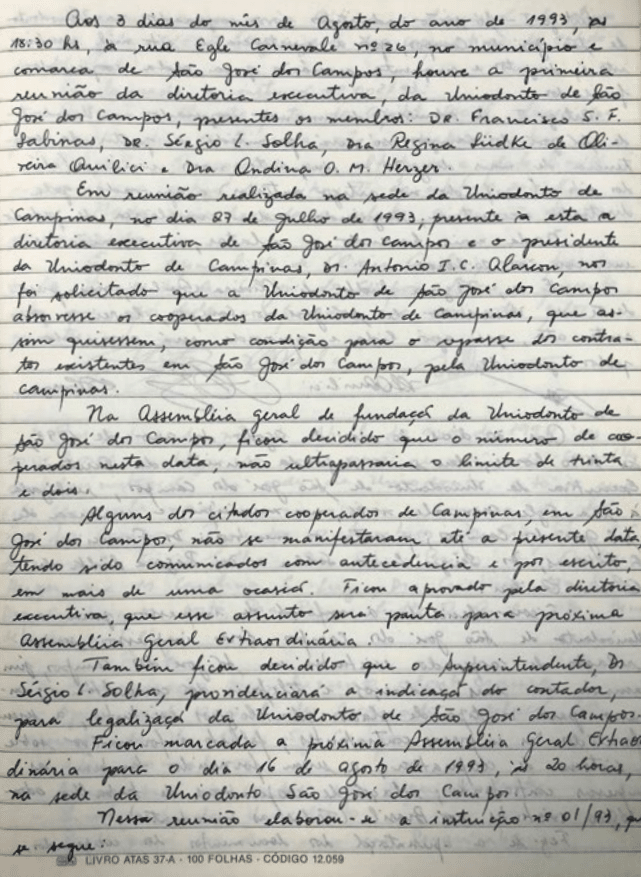 Aos 3 dias do mês de Agosto, do ano de 1993, às
18:30 hs, à rua Egle Carnevale nº 26, no município e
comarca de São José dos Campos, houve a primeira
reunião da diretoria executiva, da Uniodonto de São
José dos Campos, presentes os membros: DR. Francisco S. F.
Sabinas, DR. Sérgio L. Solha, Dra Regina Lüdke de Oli-
veira Quilici e Dra Ondina O. M. Herzer.
Em reunião realizada na sede da Uniodonto de
Campinas, no dia 27 de Julho de 1993, presente à esta a
diretoria executiva de São José dos Campos e o presidente
da Uniodonto de Campinas, Dr. Antonio I.C. Alarcon, nos
foi solicitado que a Uniodonto de São José dos Campos
absorvesse os cooperados da Uniodonto de Campinas, que as-
sim quisessem, como condição para o repasse dos contra-
tos existentes em São José dos Campos, pela Uniodonto de
Campinas.
Na Assembléia geral de fundaçã da Uniodonto de
São José dos Campos, ficou decidido que o número de coo-
perados nesta data, não ultrapassaria o limite de trinta
e dois.
Alguns dos citados cooperados de Campinas, em São
José dos Campos, não se manifestaram até a presente data
tendo sido comunicados com antecedencia e por escrito,
em mais de uma ocasiã. Ficou aprovado pela diretoria
executiva, que esse assunto será pauta para próxima
Assembléia Geral Extraordinária.
Também ficou decidido que o Superintendente, Dr
Sérgio L. Solha, providenciará a indicaçã do contador,
para legalizaçã da Uniodonto de São José dos Campos.
Ficou marcada a próxima Assembléia Geral Extraor
dinária para o dia 16 de Agosto de 1993, às 20 horas,
na sede da Uniodonto São José dos Campos.
Nessa reunião elaborou-se a instrução nº 01/93, que
se segue:
LIVRO ATAS 37-A - 100 FOLHAS - CÓDIGO 12.059